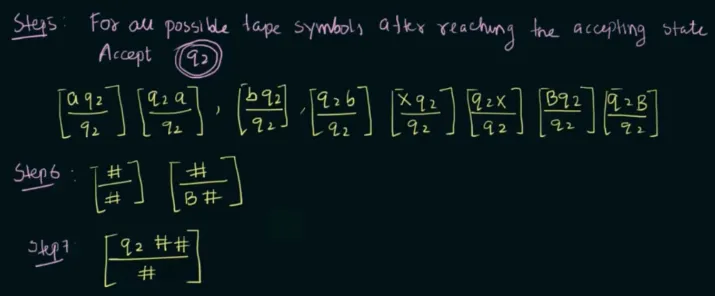 Step5: For all possible tape symbols after reaching the accepting state
Accept q2
[a q2 / q2] [q2 a / q2] , [b q2 / q2] , [q2 b / q2] [X q2 / q2] [q2 X / q2] [B q2 / q2] [q2 B / q2]
Step6: [# / #] [# / B #]
Step7 [q2 ## / #]